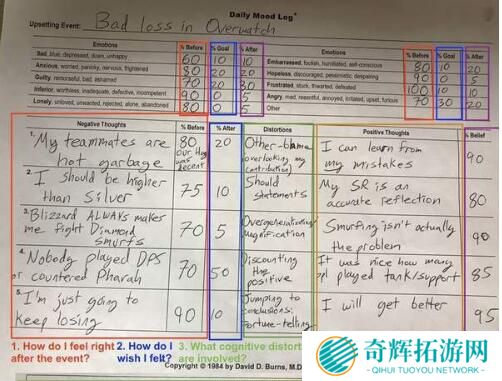 Daily Mood Log*
Upsetting Event: Bad loss in Overwatch
Emotions % Before % Goal % After Emotions % Before % Goal % After
Sad, blue, depressed, down, unhappy 60 10 10 Embarrassed, foolish, humiliated, self-conscious 80 10 20
Anxious, worried, panicky, nervous, frightened 80 20 20 Hopeless, discouraged, pessimistic, despairing 90 0 5
Guilty, remorseful, bad, ashamed 70 20 30 Frustrated, stuck, thwarted, defeated 100 10 10
Inferior, worthless, inadequate, defective, incompetent 90 0 Angry, mad, resentful, annoyed, irritated, upset, furious 70 30 20
Lonely, unloved, unwanted, rejected, alone, abandoned 80 0 5 Other
Negative Thoughts % Before % After Distortions Positive Thoughts % Belief
1. My teammates are 80 20 Other-blame I can learn from 90
hot garbage our Hog was decent (overlooking my contribution) my mistakes
2. I should be higher 75 10 Should My SR is an 80
than Silver statements accurate reflection
3. Blizzard ALWAYS makes 70 5 Overgeneralization/ Smurfing isn't actually 90
me fight Diamond magnification the problem
smurfs
4. Nobody played DPS 70 50 Discounting It was nice how many 85
or countered Pharah the positive ppl played tank/support
5. I'm just going to 90 10 Jumping to I will get better 95
keep losing conclusions: fortune-telling
1. How do I feel right 2. How do I 3. What cognitive distort
after the event? wish I felt? are involved?
Copyright © 1984 by David D. Burns, M.D
奇辉拓游网